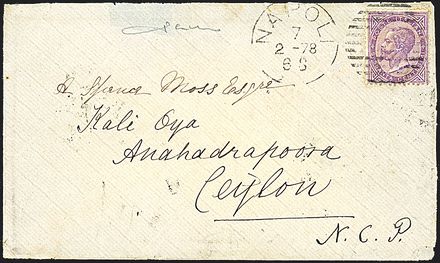 NAPOLI
7
2 -78
6 S
A Moss Esqre
Kali Oya
Anahadrapoora
Ceylon
N. C. P.